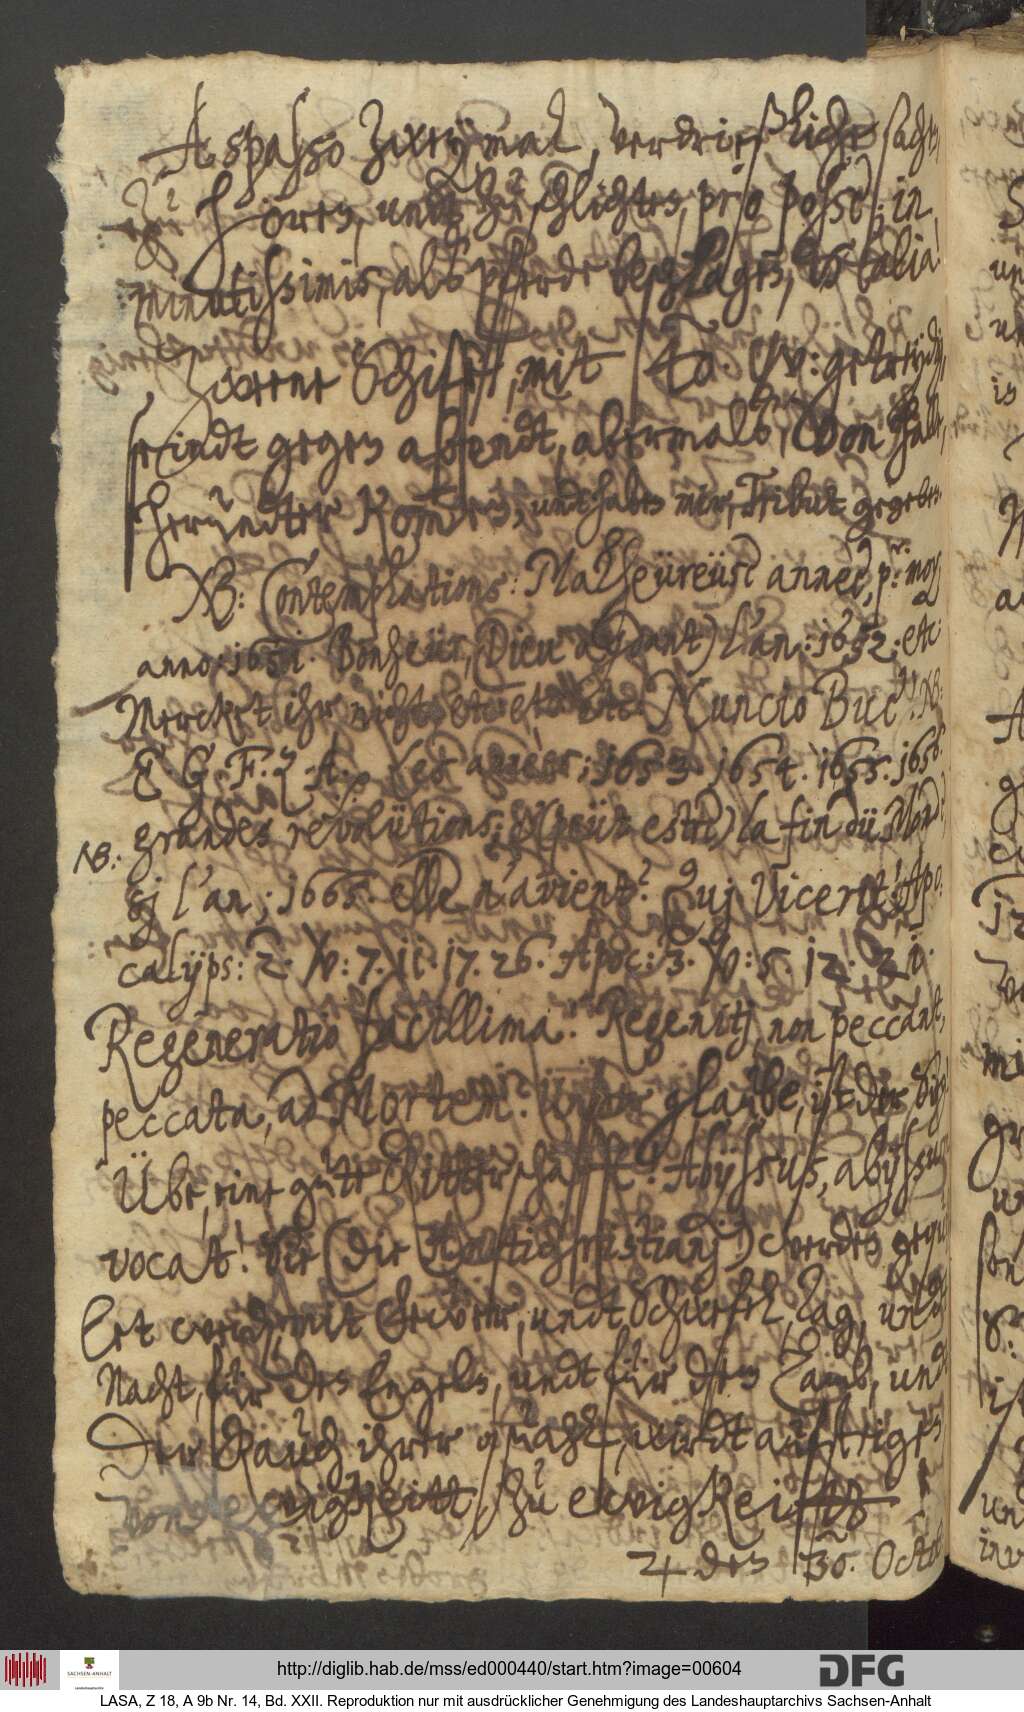 A spasso zweymal, verdrießliche sachen
zu hören, undt zu schlichten, pro posse; in
minutissimis, alß pferde beschlagen, et talia!
Zweene Schiffe, mit 40 W: getreydig,
seindt gegen abendt, abermals, von
herundter kommen, undt haben mir, Tribut gegeben.
NB: Contemplations: Malheureuse annèe, p: moy
anno: 1651. Bonheur, (Dieu aydant) l'an: 1652. etc:
Mercket ihr nichts etc etc etc Nuncio Buc NB:
E. G. F. Z. A. Les annèes; 1653. 1654. 1655. 1656.
grandes revolütions; et (peüt estre) la fin dü Monde
NB: sj l'an; 1665. elle n'avient? Quj Vicerit! Apo
calÿps: 2. W: 7. 11. 17. 26. Apoc: 3. W: 5. 12. 21.
Regeneratio facillima. Regenitj, non peccant,
peccata, ad Mortem! Unser glaube, ist der Sieg
Übe, eine gute Ritterschafft! Abÿssus, abÿssum
vocat! Sie (die Antichristianj) werden geque
let werden mit fewer, undt Schwefel, Tag, undt
Nacht, für den Engeln, undt für dem Lamb, und
der Rauch ihrer quahl, wirdt aufsteigen
von ewigkeitt, zu ewigkeitt
♃ den 30. Octob
http://diglib.hab.de/mss/ed000440/start.htm?image=00604
SACHSEN-ANHALT
DFG
LASA, Z 18, A 9b Nr. 14, Bd. XXII. Reproduktion nur mit ausdrücklicher Genehmigung des Landeshauptarchivs Sachsen-Anhalt